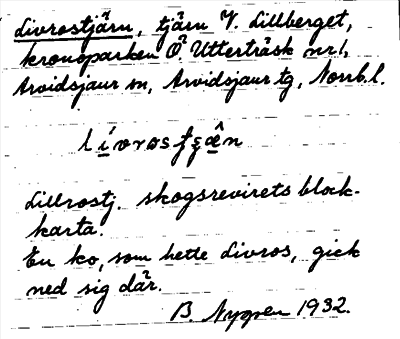 Livrostjärn, tjärn V. Lillberget,
kronoparken Ö. Utterträsk nr 1,
Arvidsjaur sn, Arvidsjaur tg, Norrb. l.
Lillrostj. skogsrevirets block-
karta.
En ko, som hette Livros, gick
ned sig där.
B. Nygren 1932.